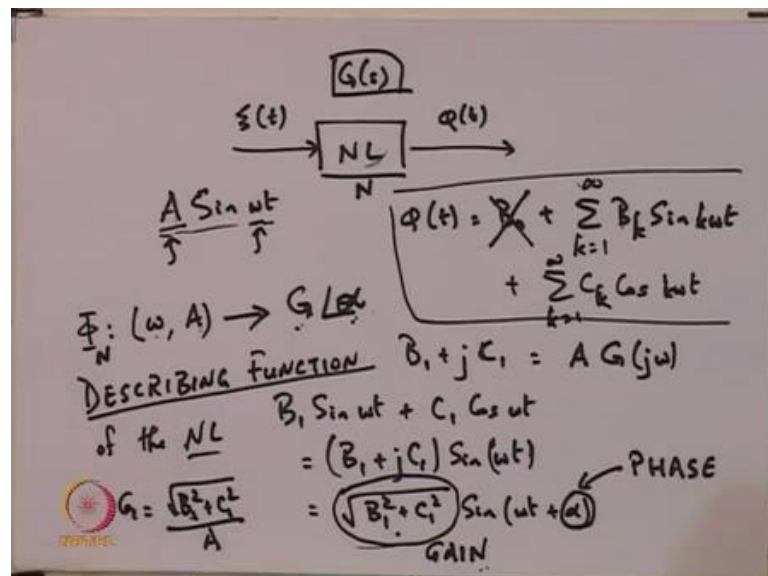 G(s)
ξ(t) NL φ(t)
N
A Sin ωt
φ(t) = B₀ + ∞ Σ k=1 Bₖ Sin kωt
+ ∞ Σ k=1 Cₖ Cos kωt
Φ_N : (ω, A) → G∠α
DESCRIBING FUNCTION
of the NL
B₁ + j C₁ = A G(jω)
B₁ Sin ωt + C₁ Cos ωt
= (B₁ + jC₁) Sin(ωt)
= √(B₁² + C₁²) Sin(ωt + α)
GAIN
PHASE
G = √(B₁² + C₁²) / A
NPTEL